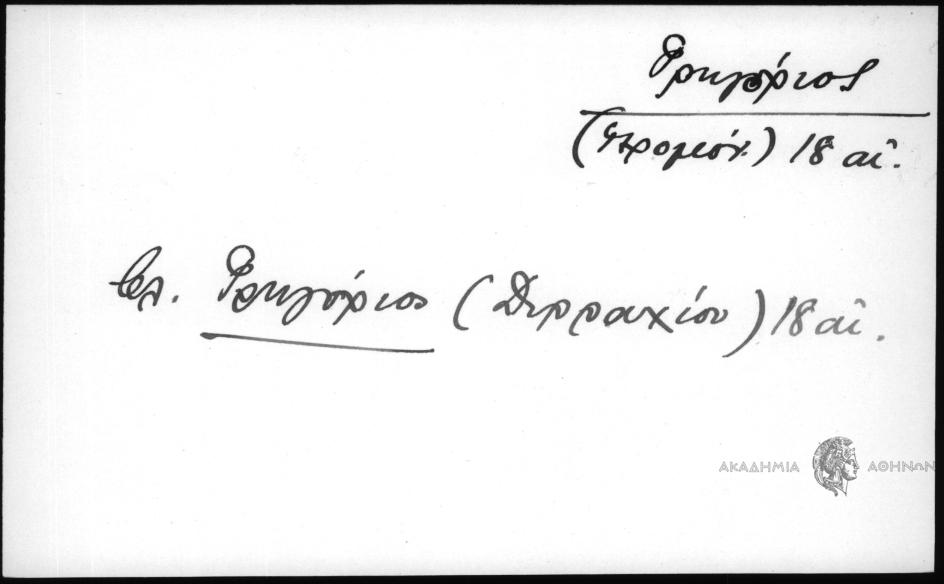 Γρηγόριος
(ἱερομόν.) 18 αἰ.
βλ. Γρηγόριος (Δυρραχίου) 18 αἰ.
ΑΚΑΔΗΜΙΑ ΑΘΗΝΩΝ